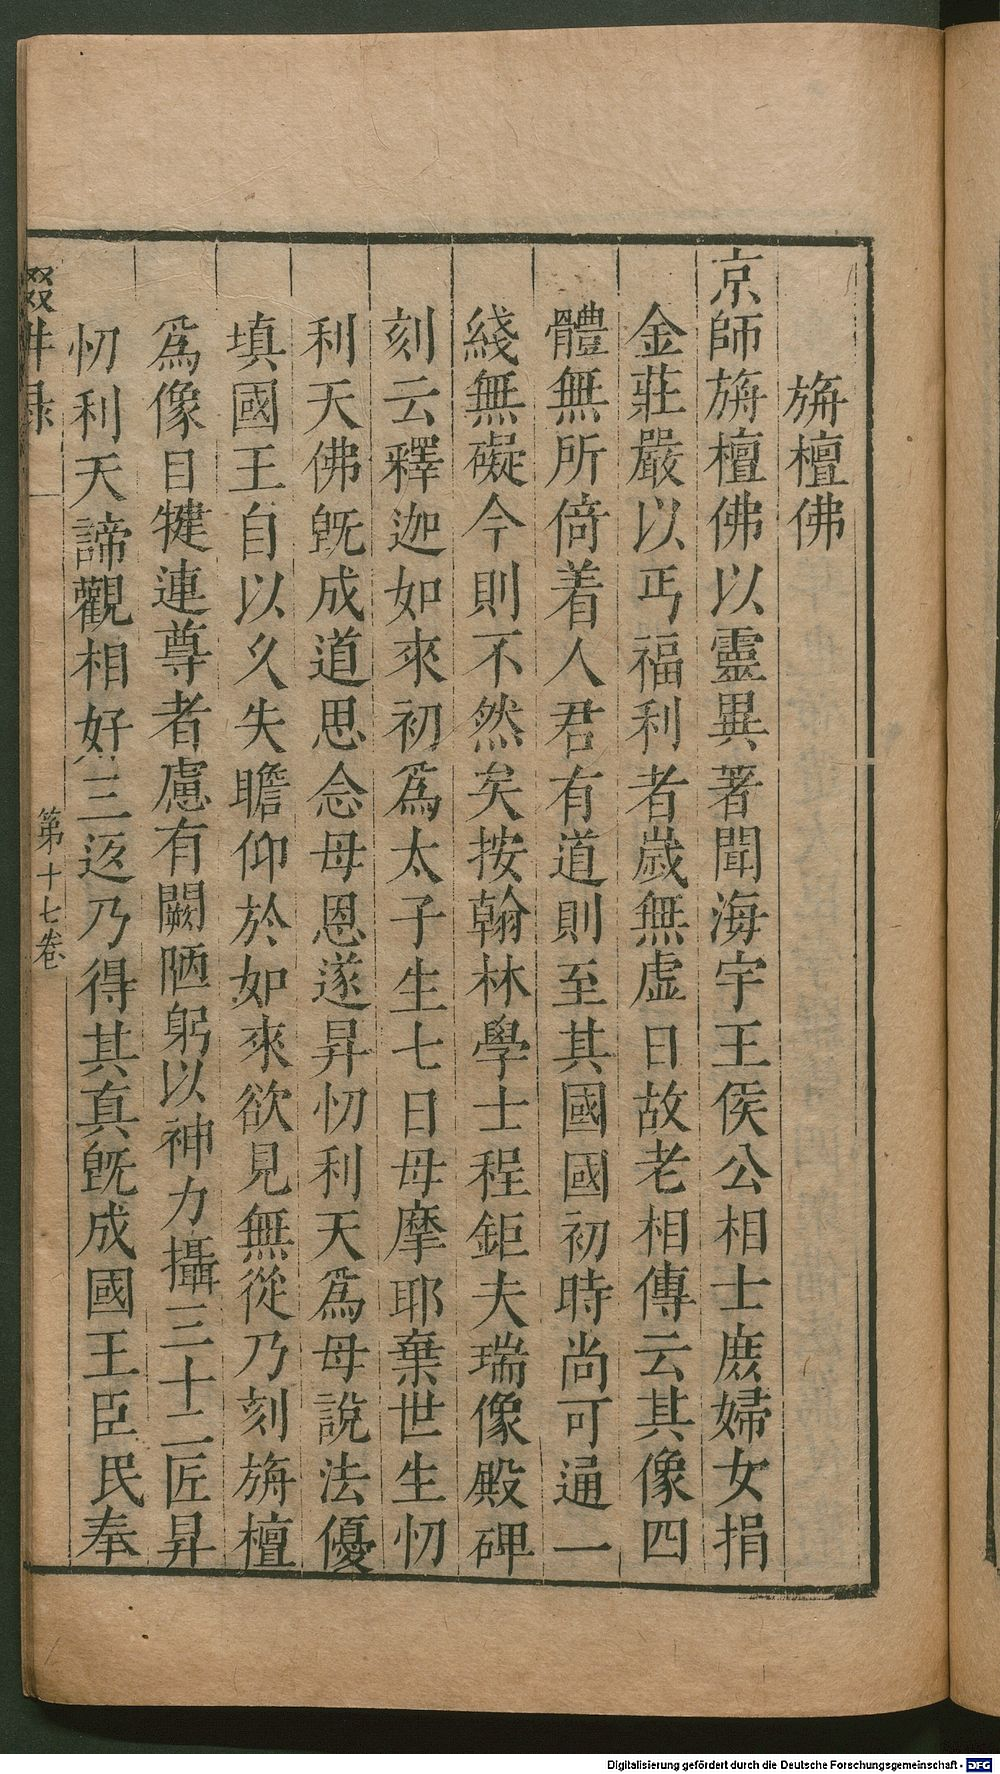 旃檀佛
京師旃檀佛以靈異著聞海宇王侯公相士庻婦女捐
金莊嚴以丐福利者歲無虚日故老相傳云其像四
體無所倚着人君有道則至其國國初時尚可通一
綫無礙今則不然矣按翰林學士程鉅夫瑞像殿碑
刻云釋迦如來初爲太子生七日母摩耶棄世生忉
利天佛旣成道思念母恩遂昇忉利天爲母說法優
填國王自以久失瞻仰於如來欲見無從乃刻旃檀
爲像目犍連尊者慮有闕陋躬以神力攝三十二匠昇
忉利天諦觀相好三返乃得其真旣成國王臣民奉
輟畊録
第十七卷
Digitalisierung gefördert durch die Deutsche Forschungsgemeinschaft - DFG